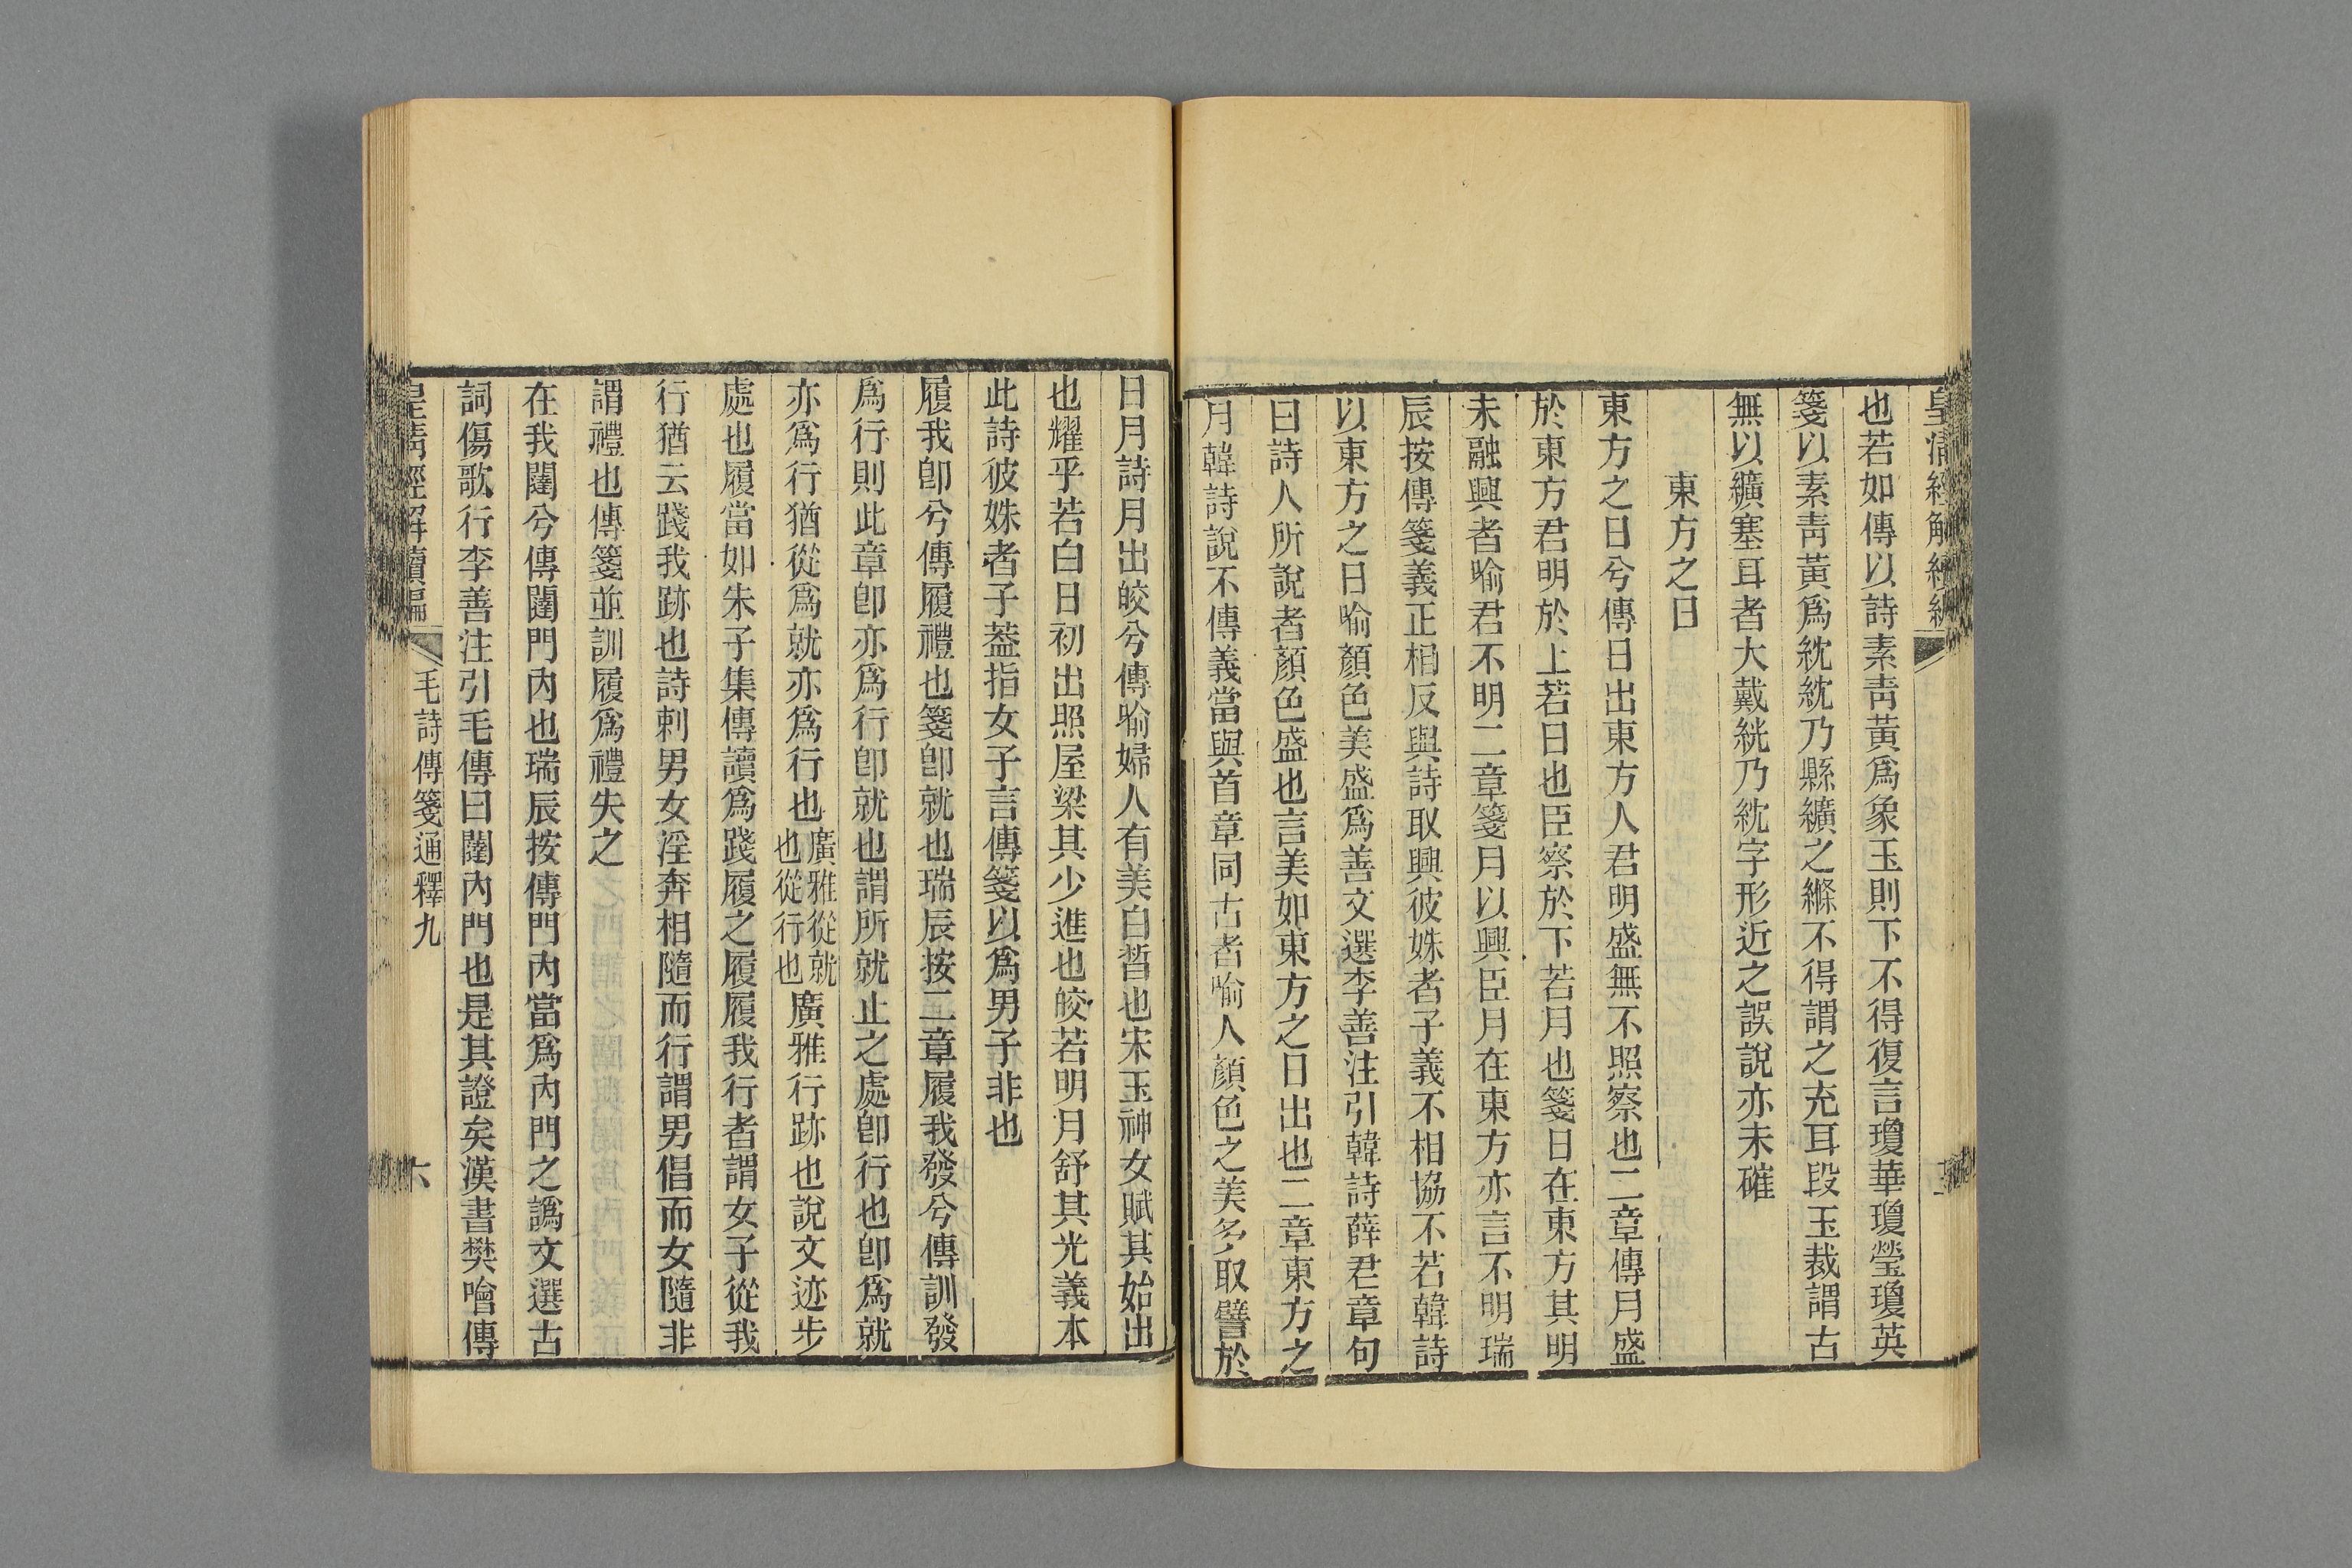 皇清經解續編
也若如傳以詩素靑黃爲象玉則下不得復言瓊華瓊瑩瓊英
箋以素靑黃爲紞紞乃縣纊之縧不得謂之充耳段玉裁謂古
無以纊塞耳者大戴絖乃紞字形近之誤說亦未確
東方之日
東方之日兮傳日出東方人君明盛無不照察也二章傳月盛
於東方君明於上若日也臣察於下若月也箋日在東方其明
未融興者喻君不明二章箋月以興臣月在東方亦言不明瑞
辰按傳箋義正相反與詩取興彼姝者子義不相協不若韓詩
以東方之日喻顏色美盛爲善文選李善注引韓詩薛君章句
曰詩人所說者顏色盛也言美如東方之日出也二章東方之
月韓詩說不傳義當與首章同古者喻人顏色之美多取譬於
日月詩月出皎兮傳喻婦人有美白晳也宋玉神女賦其始出
也耀乎若白日初出照屋梁其少進也皎若明月舒其光義本
此詩彼姝者子葢指女子言傳箋以爲男子非也
履我卽兮傳履禮也箋卽就也瑞辰按二章履我發兮傳訓發
爲行則此章卽亦爲行卽就也謂所就止之處卽行也卽爲就
亦爲行猶從爲就亦爲行也廣雅從就也從行也廣雅行跡也說文迹步
處也履當如朱子集傳讀爲踐履之履履我行者謂女子從我
行猶云踐我跡也詩刺男女淫奔相隨而行謂男倡而女隨非
謂禮也傳箋並訓履爲禮失之
在我闥兮傳闥門內也瑞辰按傳門內當爲內門之譌文選古
詞傷歌行李善注引毛傳曰闥內門也是其證矣漢書樊噲傳
皇淸經解續編
毛詩傳箋通釋九
六